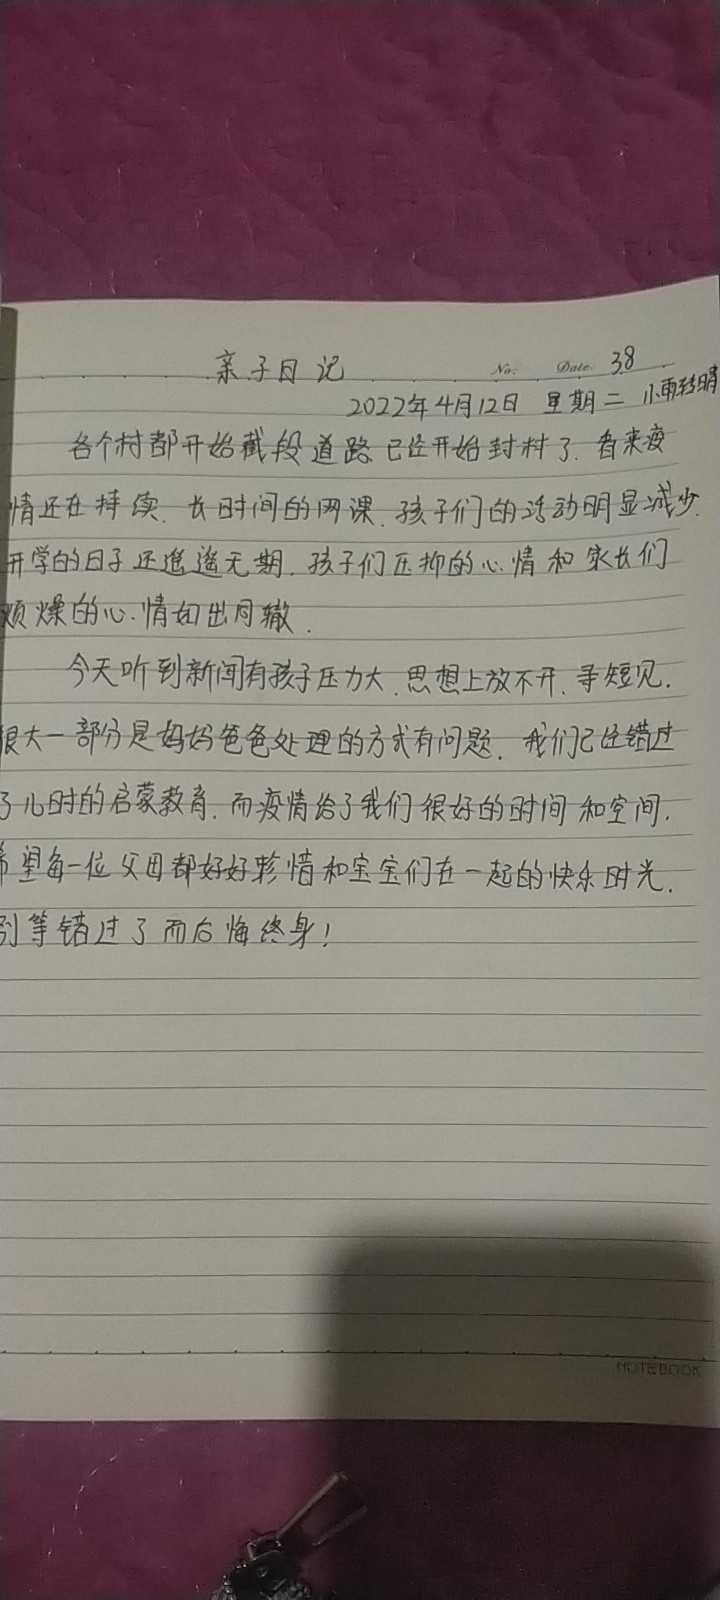 亲子日记 No: Date: 38
2022年4月12日 星期二 小雨转晴
各个村都开始截段道路已经开始封村了.看来疫
情还在持续.长时间的网课.孩子们的活动明显减少.
开学的日子还遥遥无期.孩子们压抑的心情和家长们
烦燥的心情如出同辙.
今天听到新闻有孩子压力大.思想上放不开、寻短见.
很大一部分是妈妈爸爸处理的方式有问题.我们已经错过
了儿时的启蒙教育.而疫情给了我们很好的时间和空间.
希望每一位父母都好好珍惜和宝宝们在一起的快乐时光.
别等错过了而后悔终身!
NOTEBOOK